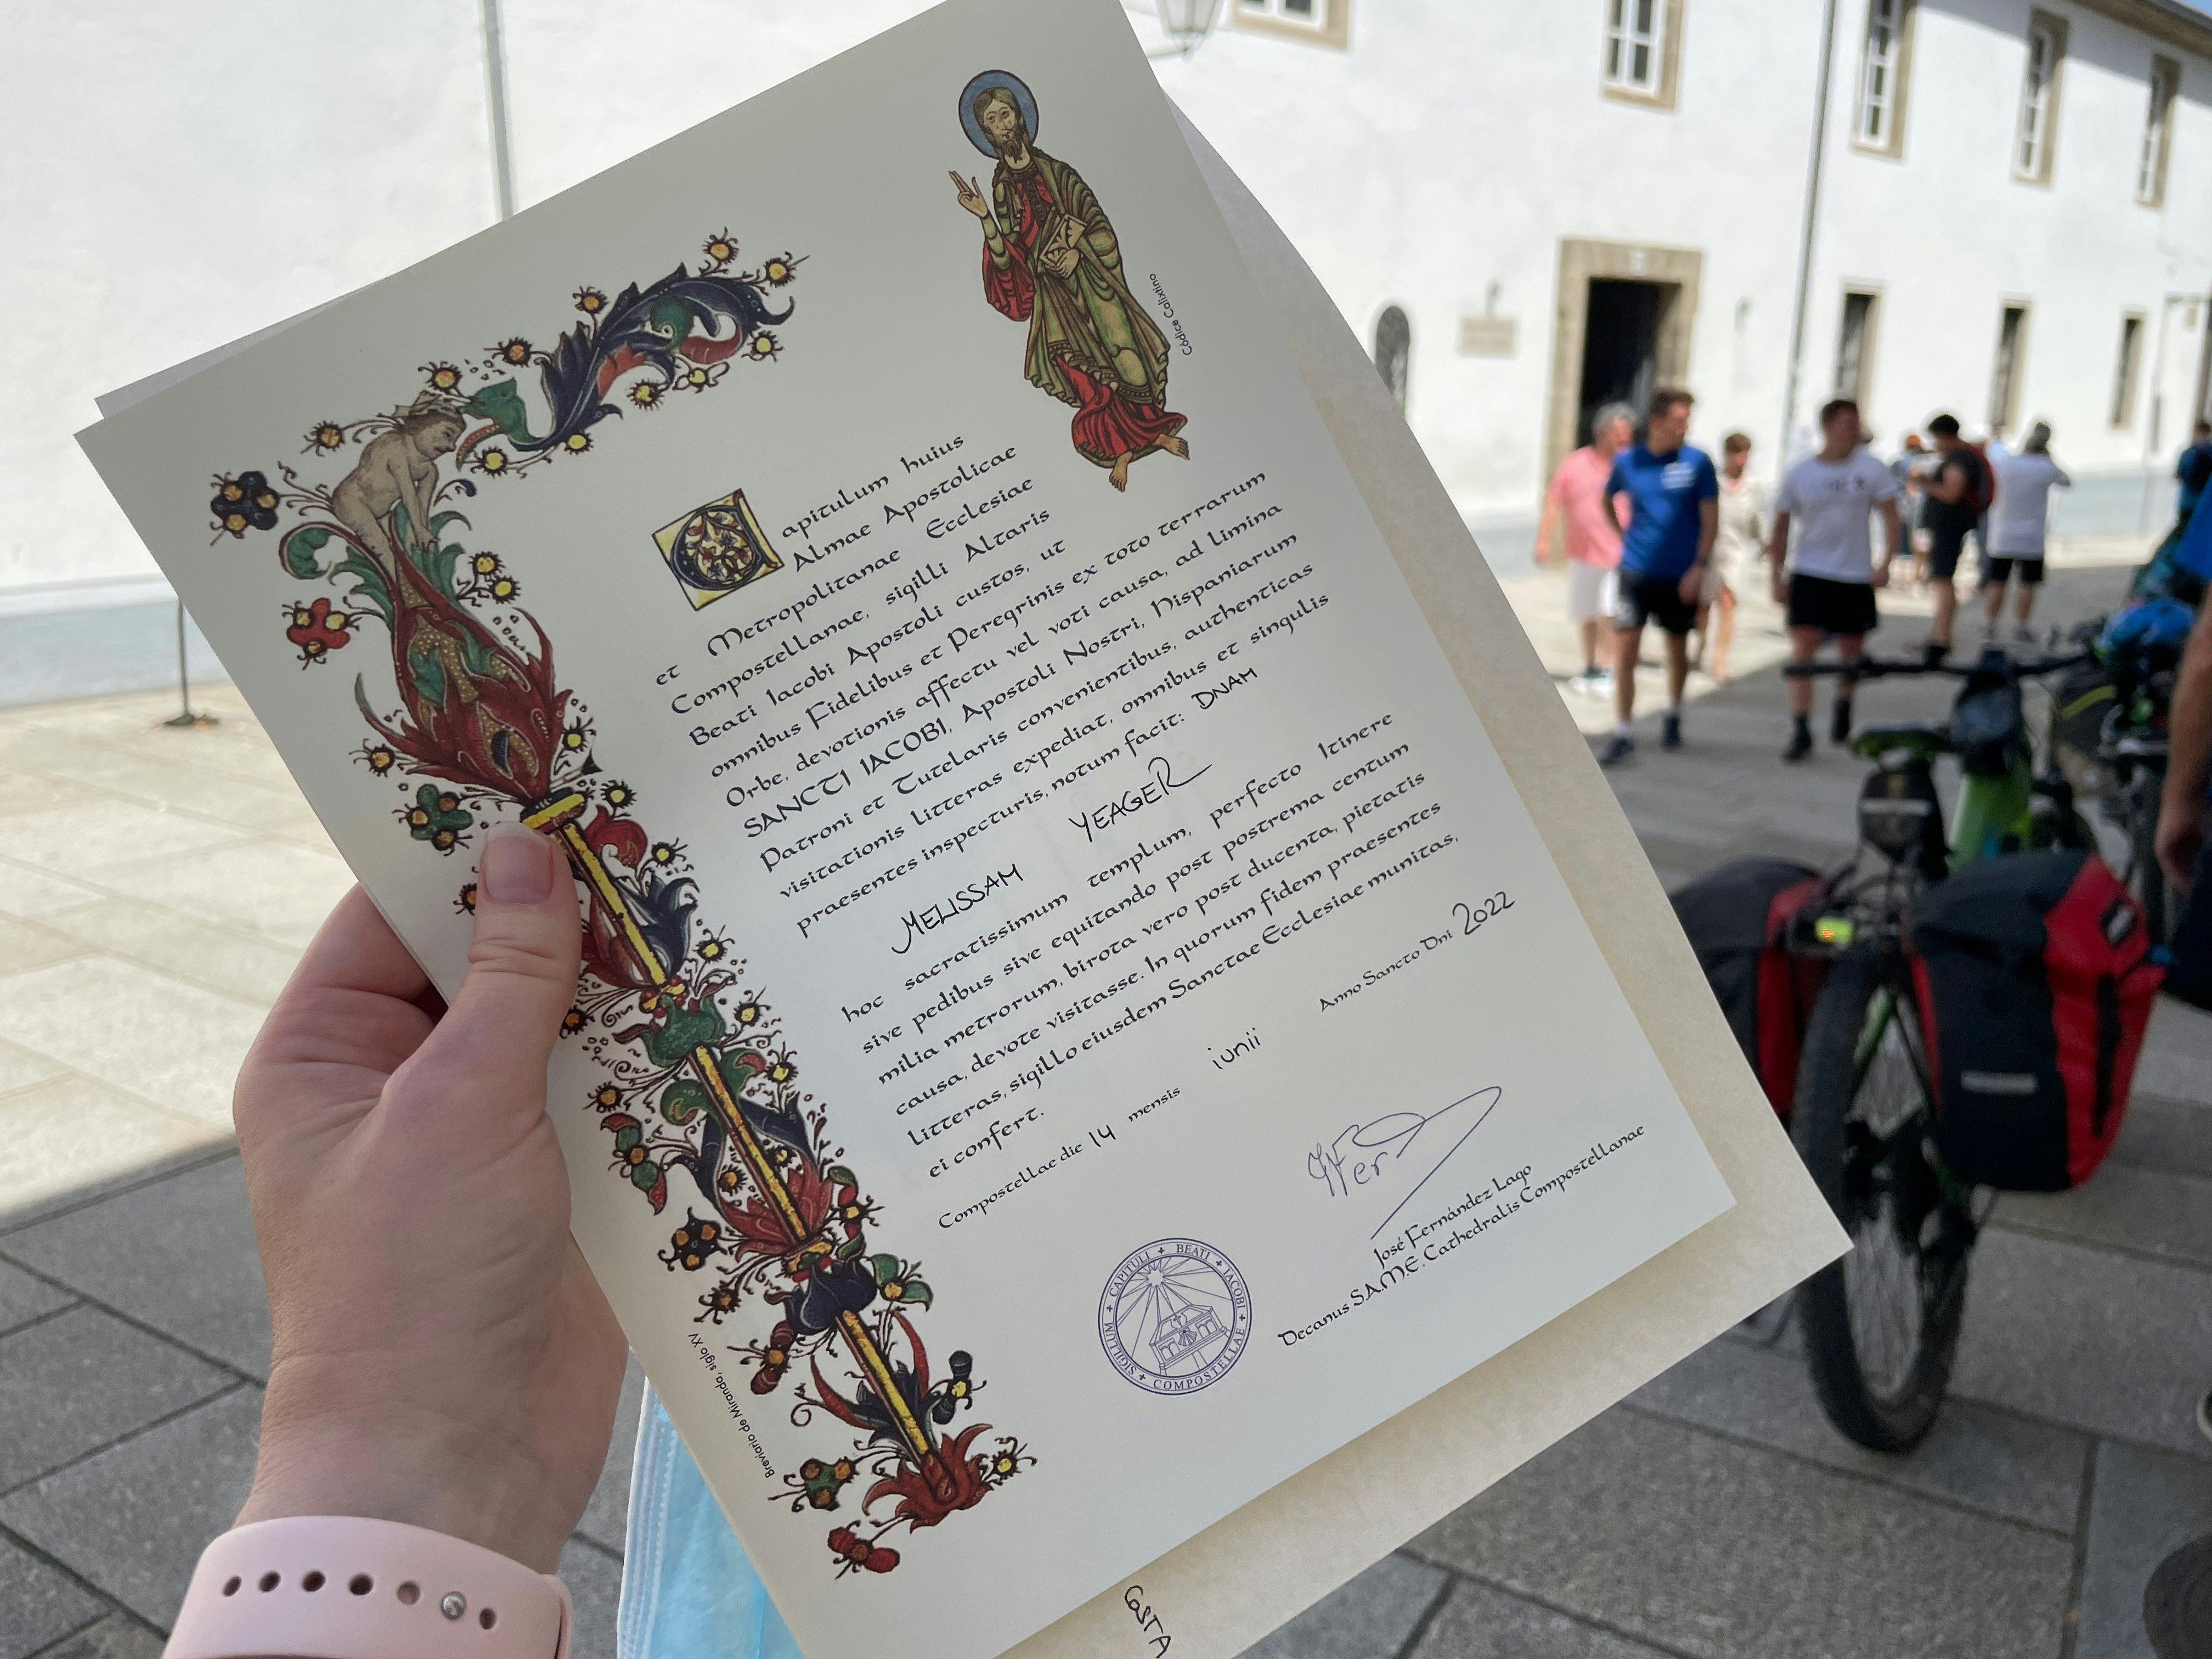 Códice Calixtino
Capitulum huius
Almae Apostolicae
et Metropolitanae Ecclesiae
Compostellanae, sigilli Altaris
Beati Iacobi Apostoli custos, ut
omnibus Fidelibus et Peregrinis ex toto terrarum
Orbe, devotionis affectu vel voti causa, ad limina
SANCTI IACOBI, Apostoli Nostri, Hispaniarum
Patroni et Tutelaris convenientibus, authenticas
visitationis litteras expediat, omnibus et singulis
praesentes inspecturis, notum facit: DNAM
MELISSAM YEAGER
hoc sacratissimum templum, perfecto Itinere
sive pedibus sive equitando post postrema centum
milia metrorum, birota vero post ducenta, pietatis
causa, devote visitasse. In quorum fidem praesentes
litteras, sigillo eiusdem Sanctae Ecclesiae munitas,
ei confert.
Compostellae die 14 mensis iunii Anno Sancto Dni 2022
José Fernández Lago
Decanus S.A.M.E. Cathedralis Compostellanae
SIGILLUM + CAPITULI + BEATI + IACOBI + COMPOSTELLAE +
Breviario de Miranda, siglo XV
COSTA